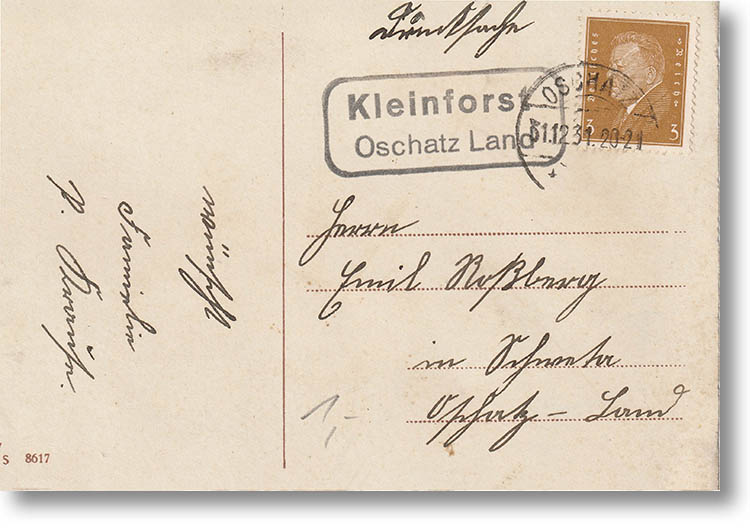 Drucksache
Deutsches Reich
3 3
OSCHATZ
31.12.31. 20-21
Kleinforst
Oschatz Land
Herrn
Emil Roßberg
in Schweta
Oschatz – Land
wünscht
Familie
P. Krause.
1,-
S 8617